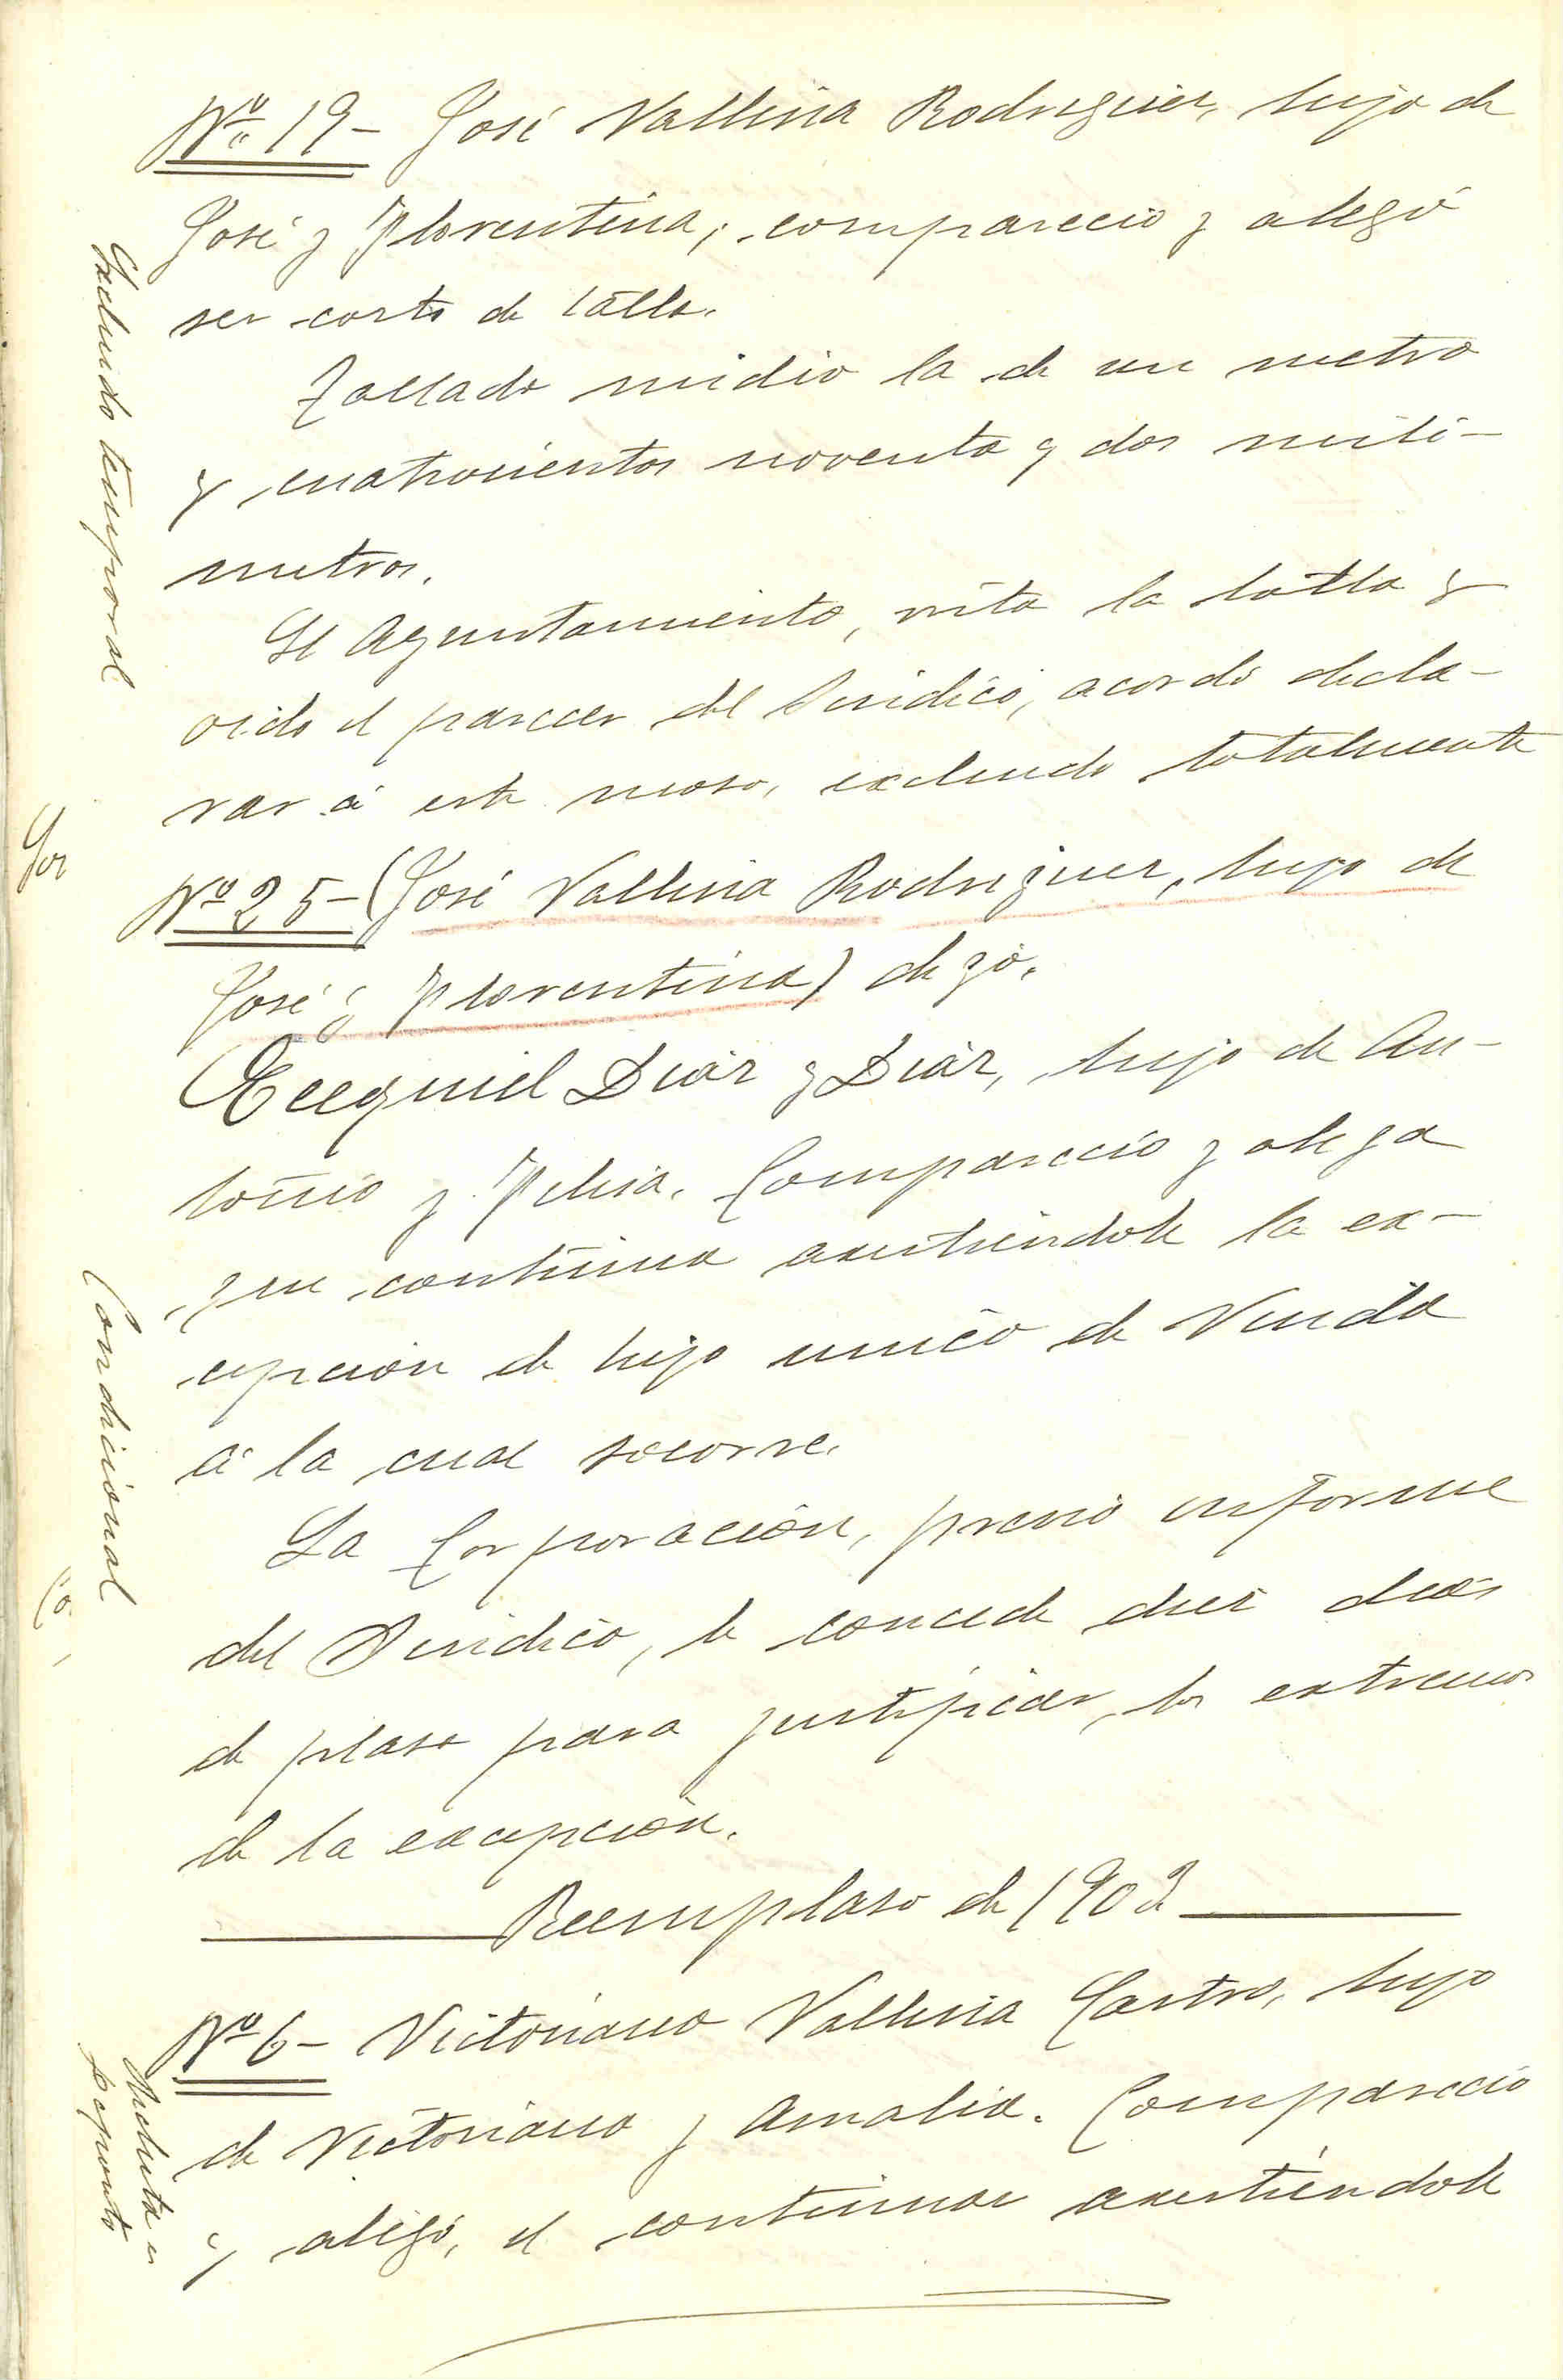 Nº 19- José Vallina Rodriguez, hijo de
José y Florentina; compareció y alegó
ser corto de talla.
Excluido temporal
Tallado midio la de un metro
y cuatrocientos noventa y dos mili-
metros.
El Ayuntamiento, vista la talla y
oido el parecer del Sindico, acordó decla-
rar á este moso, excluido totalmente
Nº 25- (José Vallina Rodriguez, hijo de
José y Florentina) digo.
Ecequiel Diáz y Diáz, hijo de An-
tonio y Felisa. Compareció y alega
que continua asistiendole la ex-
cepcion de hijo unico de Viuda
á la cual socorre.
Condicional
La Corporación, previo informe
del Sindico, le concede diez dias
de plaso para justificar, los extremos
de la excepción.
Reemplaso de 1902
Nº 6- Victoriano Vallina Castro, hijo
de Victoriano y Amalia. Compareció
y alegó, el continuar asistiéndole